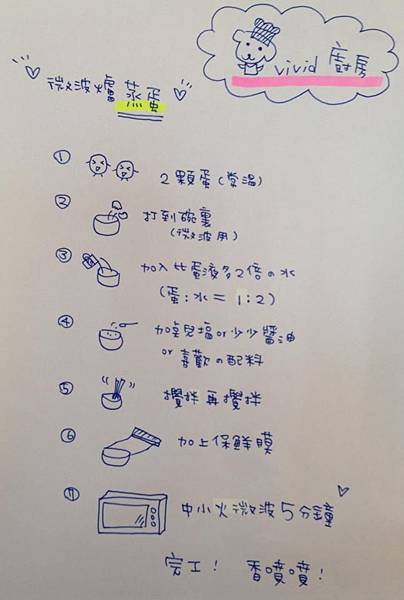 vivid 廚房
微波爐蒸蛋
① 2顆蛋(常溫)
② 打到碗裏
(微波用)
③ 加入比蛋液多2倍の水
(蛋:水=1:2)
④ 加点兒塩or少少醬油
or喜歡の配料
⑤ 攪拌再攪拌
⑥ 加上保鮮膜
⑦ 中小火微波5分鐘
完工! 香噴噴!